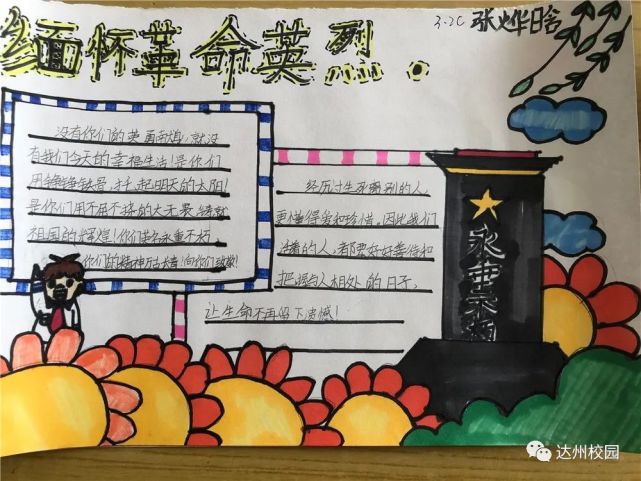 缅怀革命英烈
3.2C 张烨晗
没有你们的英勇献身,就没
有我们今天的幸福生活!是你们
用铮铮铁骨,扛起明天的太阳!
是你们用不屈不挠的大无畏铸就
祖国的辉煌!你们英名永垂不朽
你们的精神万古长青!向你们致敬!
经历过生死离别的人,
更懂得爱和珍惜,因此我们
活着的人,都要好好善待和
把握与人相处的日子,
让生命不再留下遗憾!
永垂不朽
达州校园